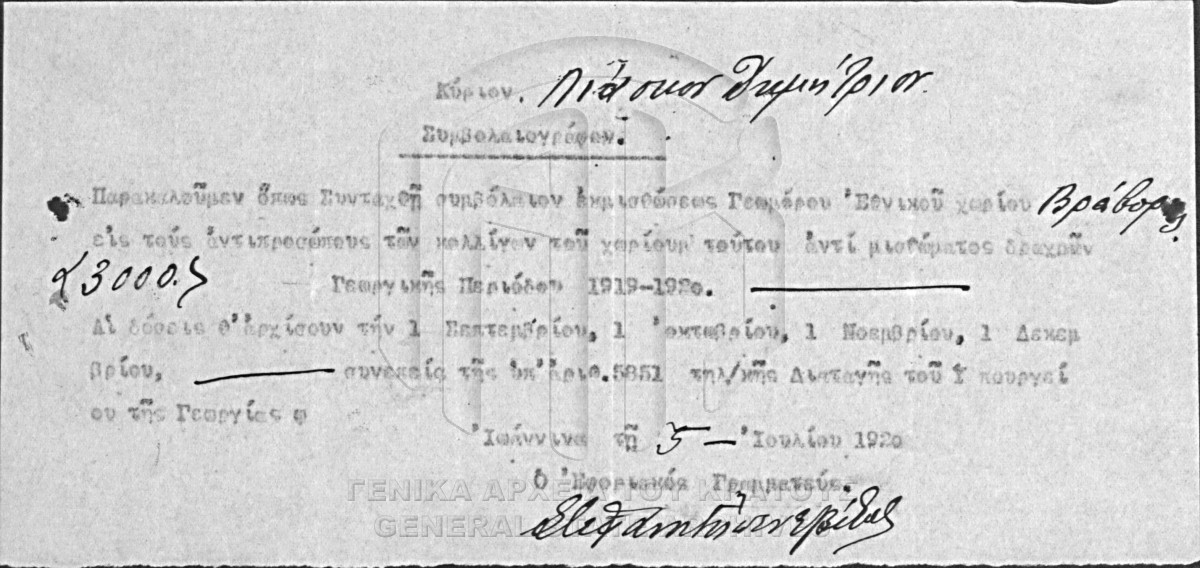 Κύριον. Λιάσκον Δημήτριον.
Συμβολαιογράφον.
Παρακαλοῦμεν ὅπως Συνταχθῇ συμβόλαιον ἐκμισθώσεως Γεωμόρου Ἐθνικοῦ χωρίου Βράβορι
εἰς τούς ἀντιπροσώπους τῶν κολλίγων τοῦ χωρίουμ τούτου ἀντί μισθώματος δραχμῶν
(3000.) Γεωργικῆς Περιόδου 1919-192ο.
Αἱ δόσεις θ'ἀρχίσουν τήν 1 Σεπτεμβρίου, 1 Ὀκτωβρίου, 1 Νοεμβρίου, 1 Δεκεμ
βρίου, συνεπείᾳ τῆς ὑπ'ἀριθ.5851 τηλ/κῆς Διαταγῆς τοῦ Υ πουργεί
ου τῆς Γεωργίας φ
Ἰωάννινα τῇ 5 - Ἰουλίου 192ο
Ὁ Ἐφοριακός Γραμματεύς.
ΓΕΝΙΚΑ ΑΡΧΕΙΑ ΤΟΥ ΚΡΑΤΟΥΣ
GENERAL